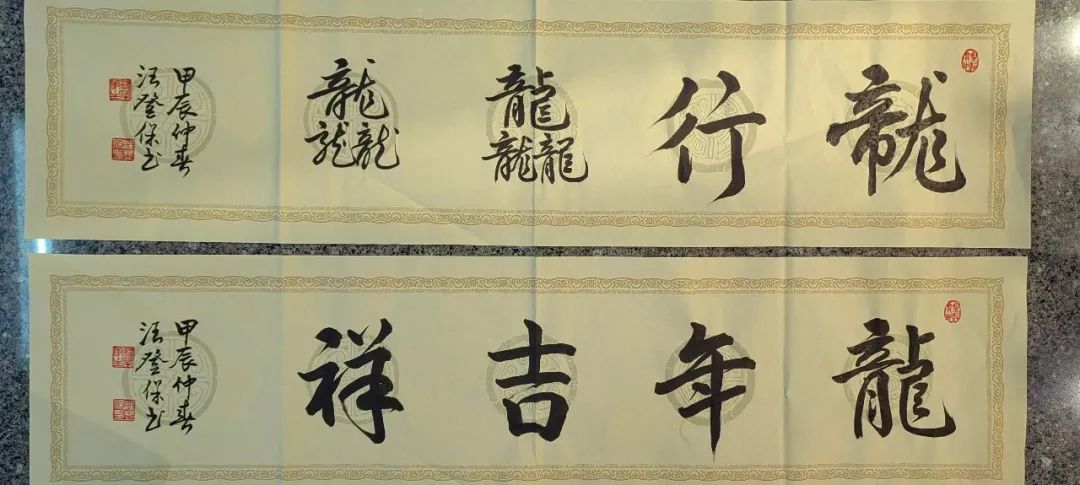 龍行龘龘
甲辰仲春
汪登保书
龍年吉祥
甲辰仲春
汪登保书